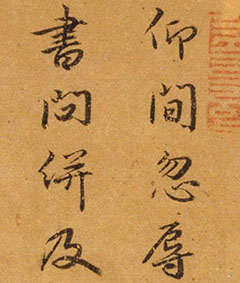 仰間忽辱
書問併及